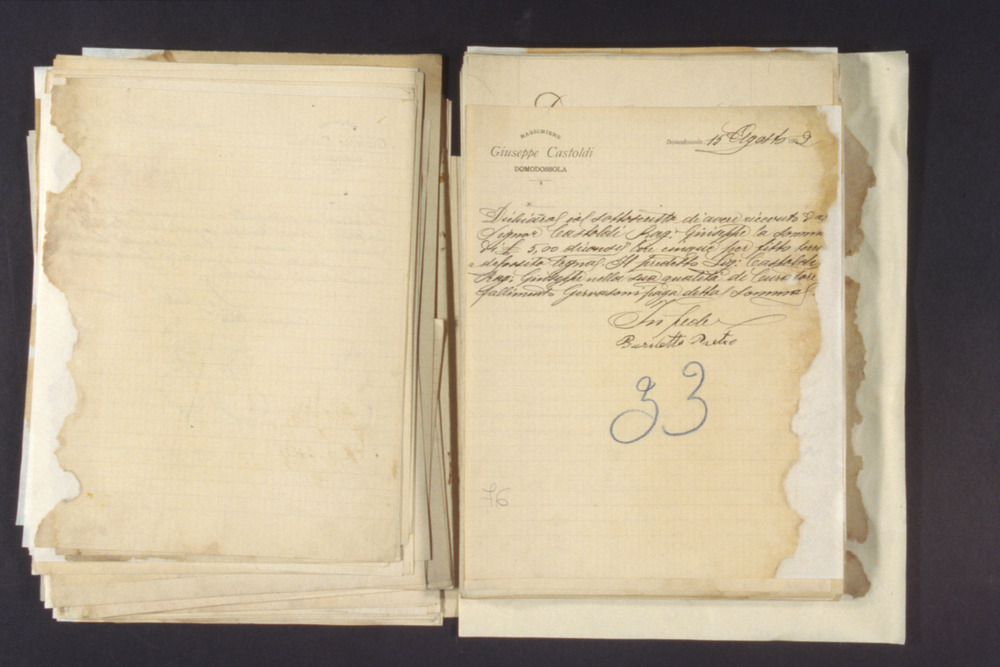 RAGIONIERE
Giuseppe Castoldi
DOMODOSSOLA
Domodossola, 15 Agosto 19 9
Dichiaro io sottoscritto di avere ricevuto dal
Signor Castoldi Rag. Giuseppe la somma
di £ 5,00 diconsi Lire cinque per fitto
deposito legna. Il predetto Sig. Castoldi
Rag. Giuseppe nella sua qualità di Curatore
fallimento Gervasoni paga detta somma
In fede
Pietro
33
76